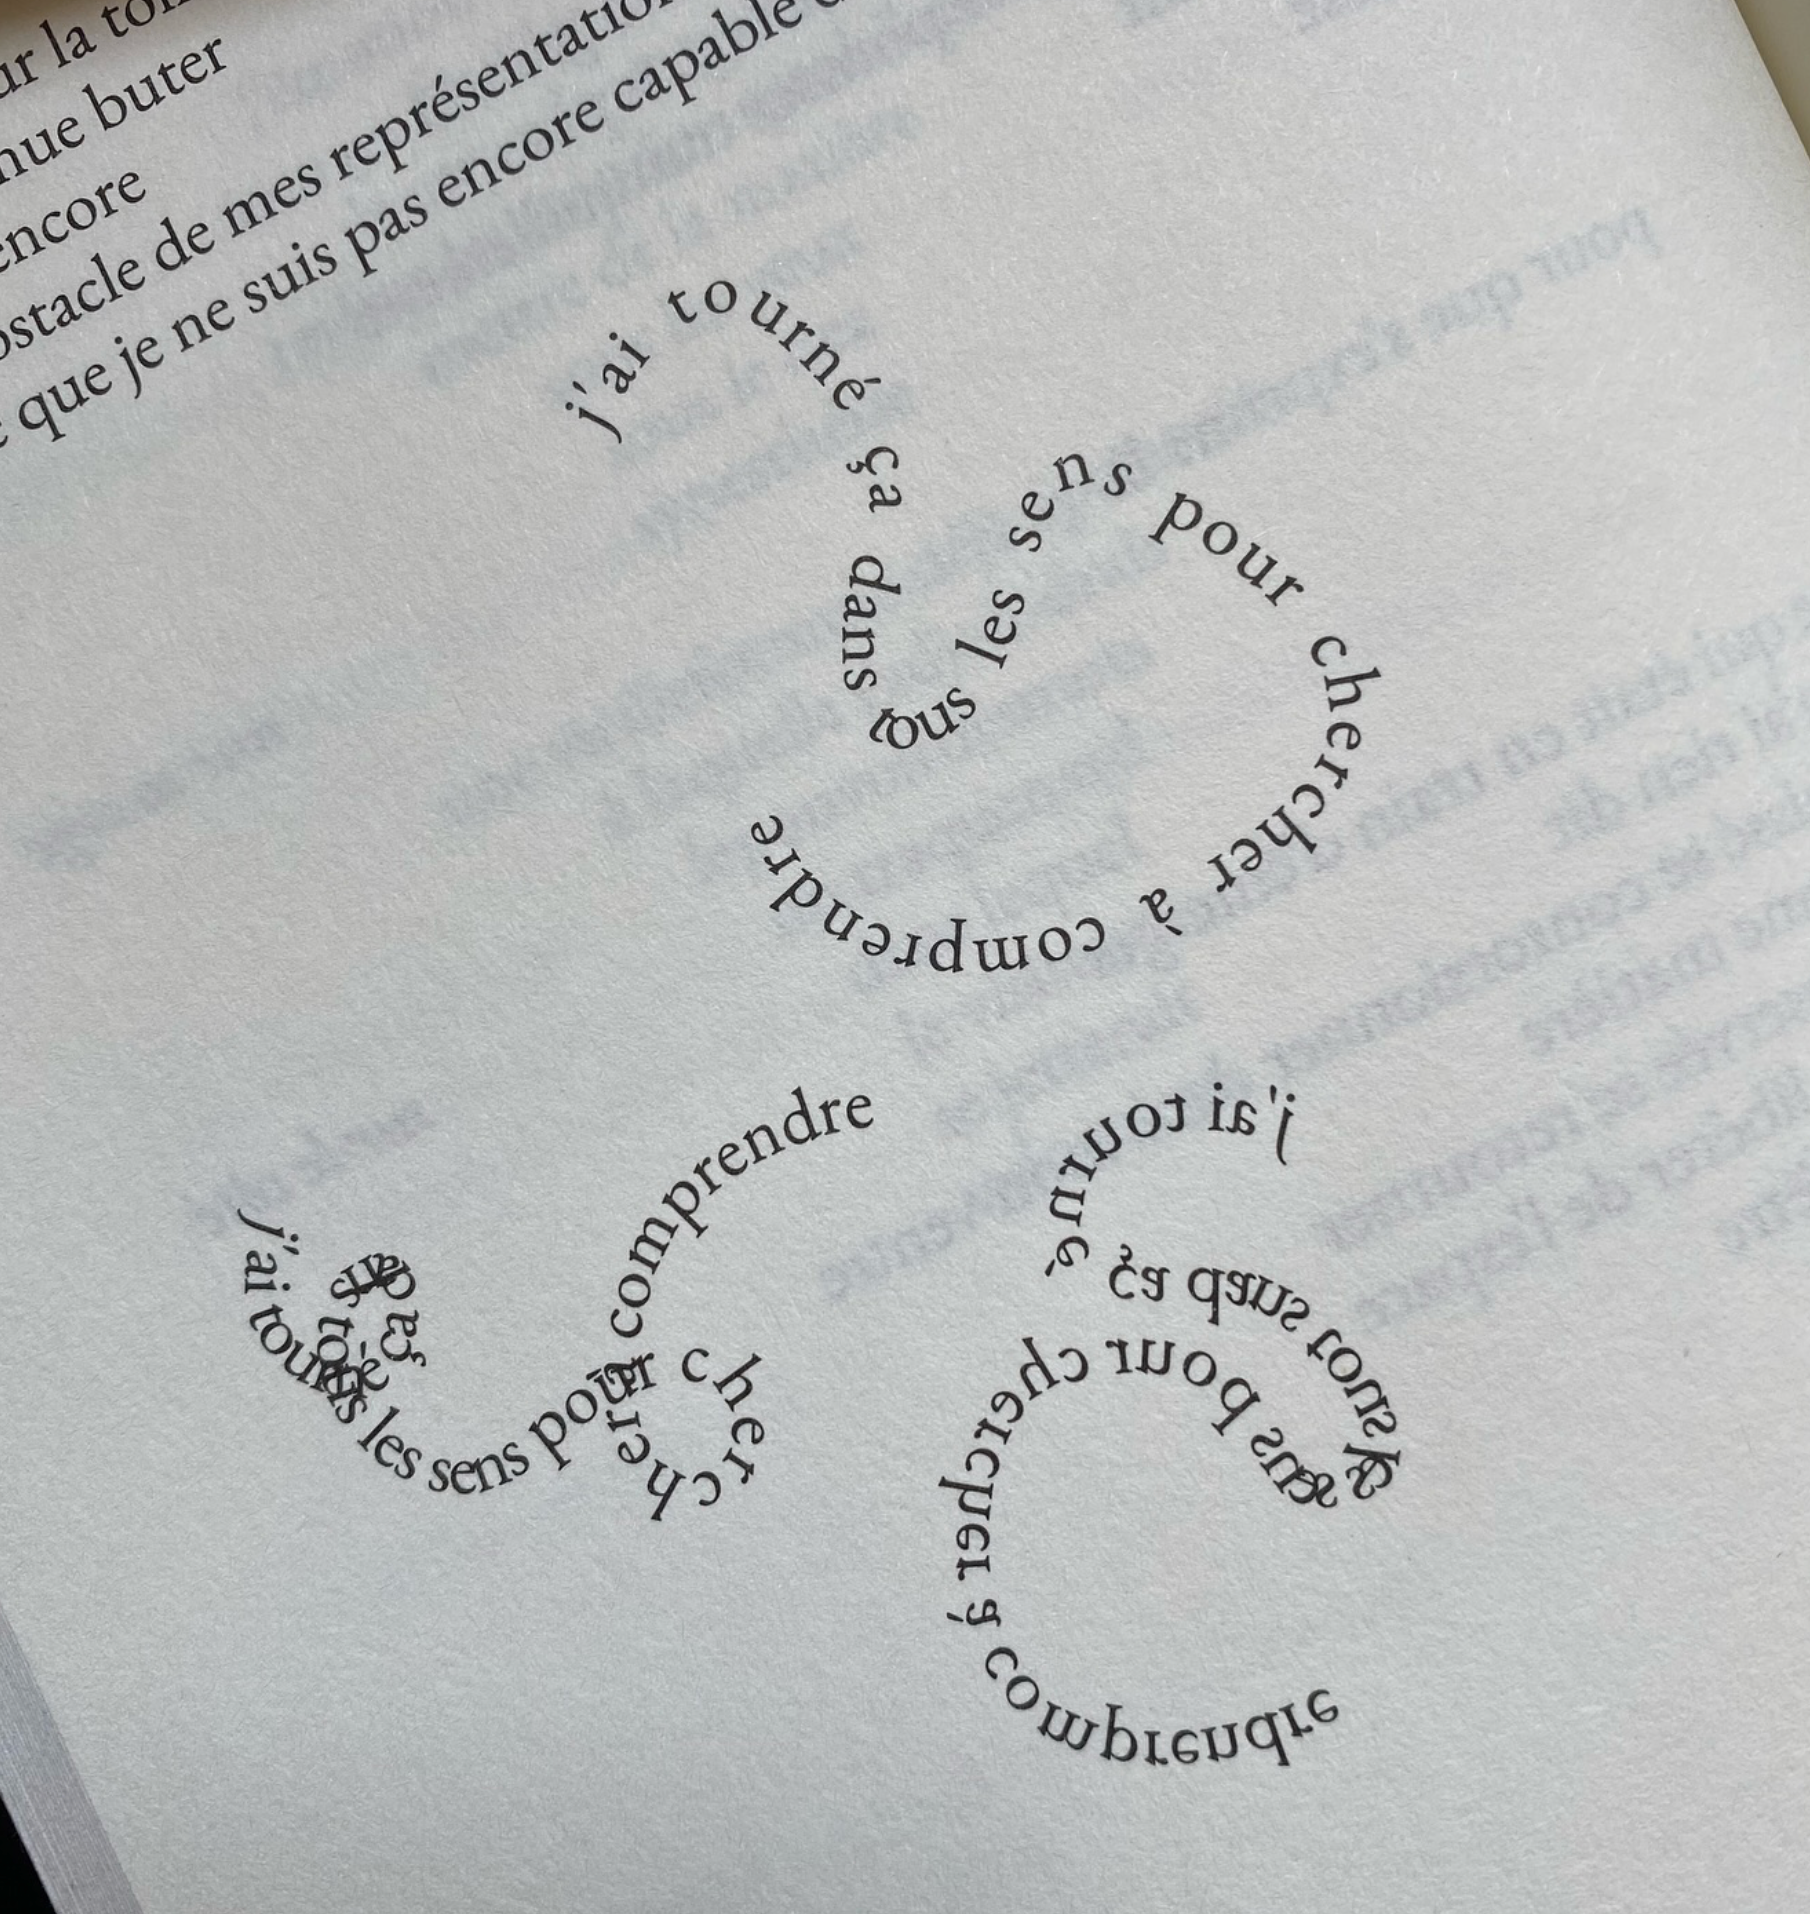 ur la
nue buter
encore
obstacle de mes représentation
que je ne suis pas encore capable
j'ai tourné ça dans tous les sens pour chercher à comprendre
j'ai tourné ça dans tous les sens pour chercher à comprendre
j'ai tourné ça dans tous les sens pour chercher à comprendre